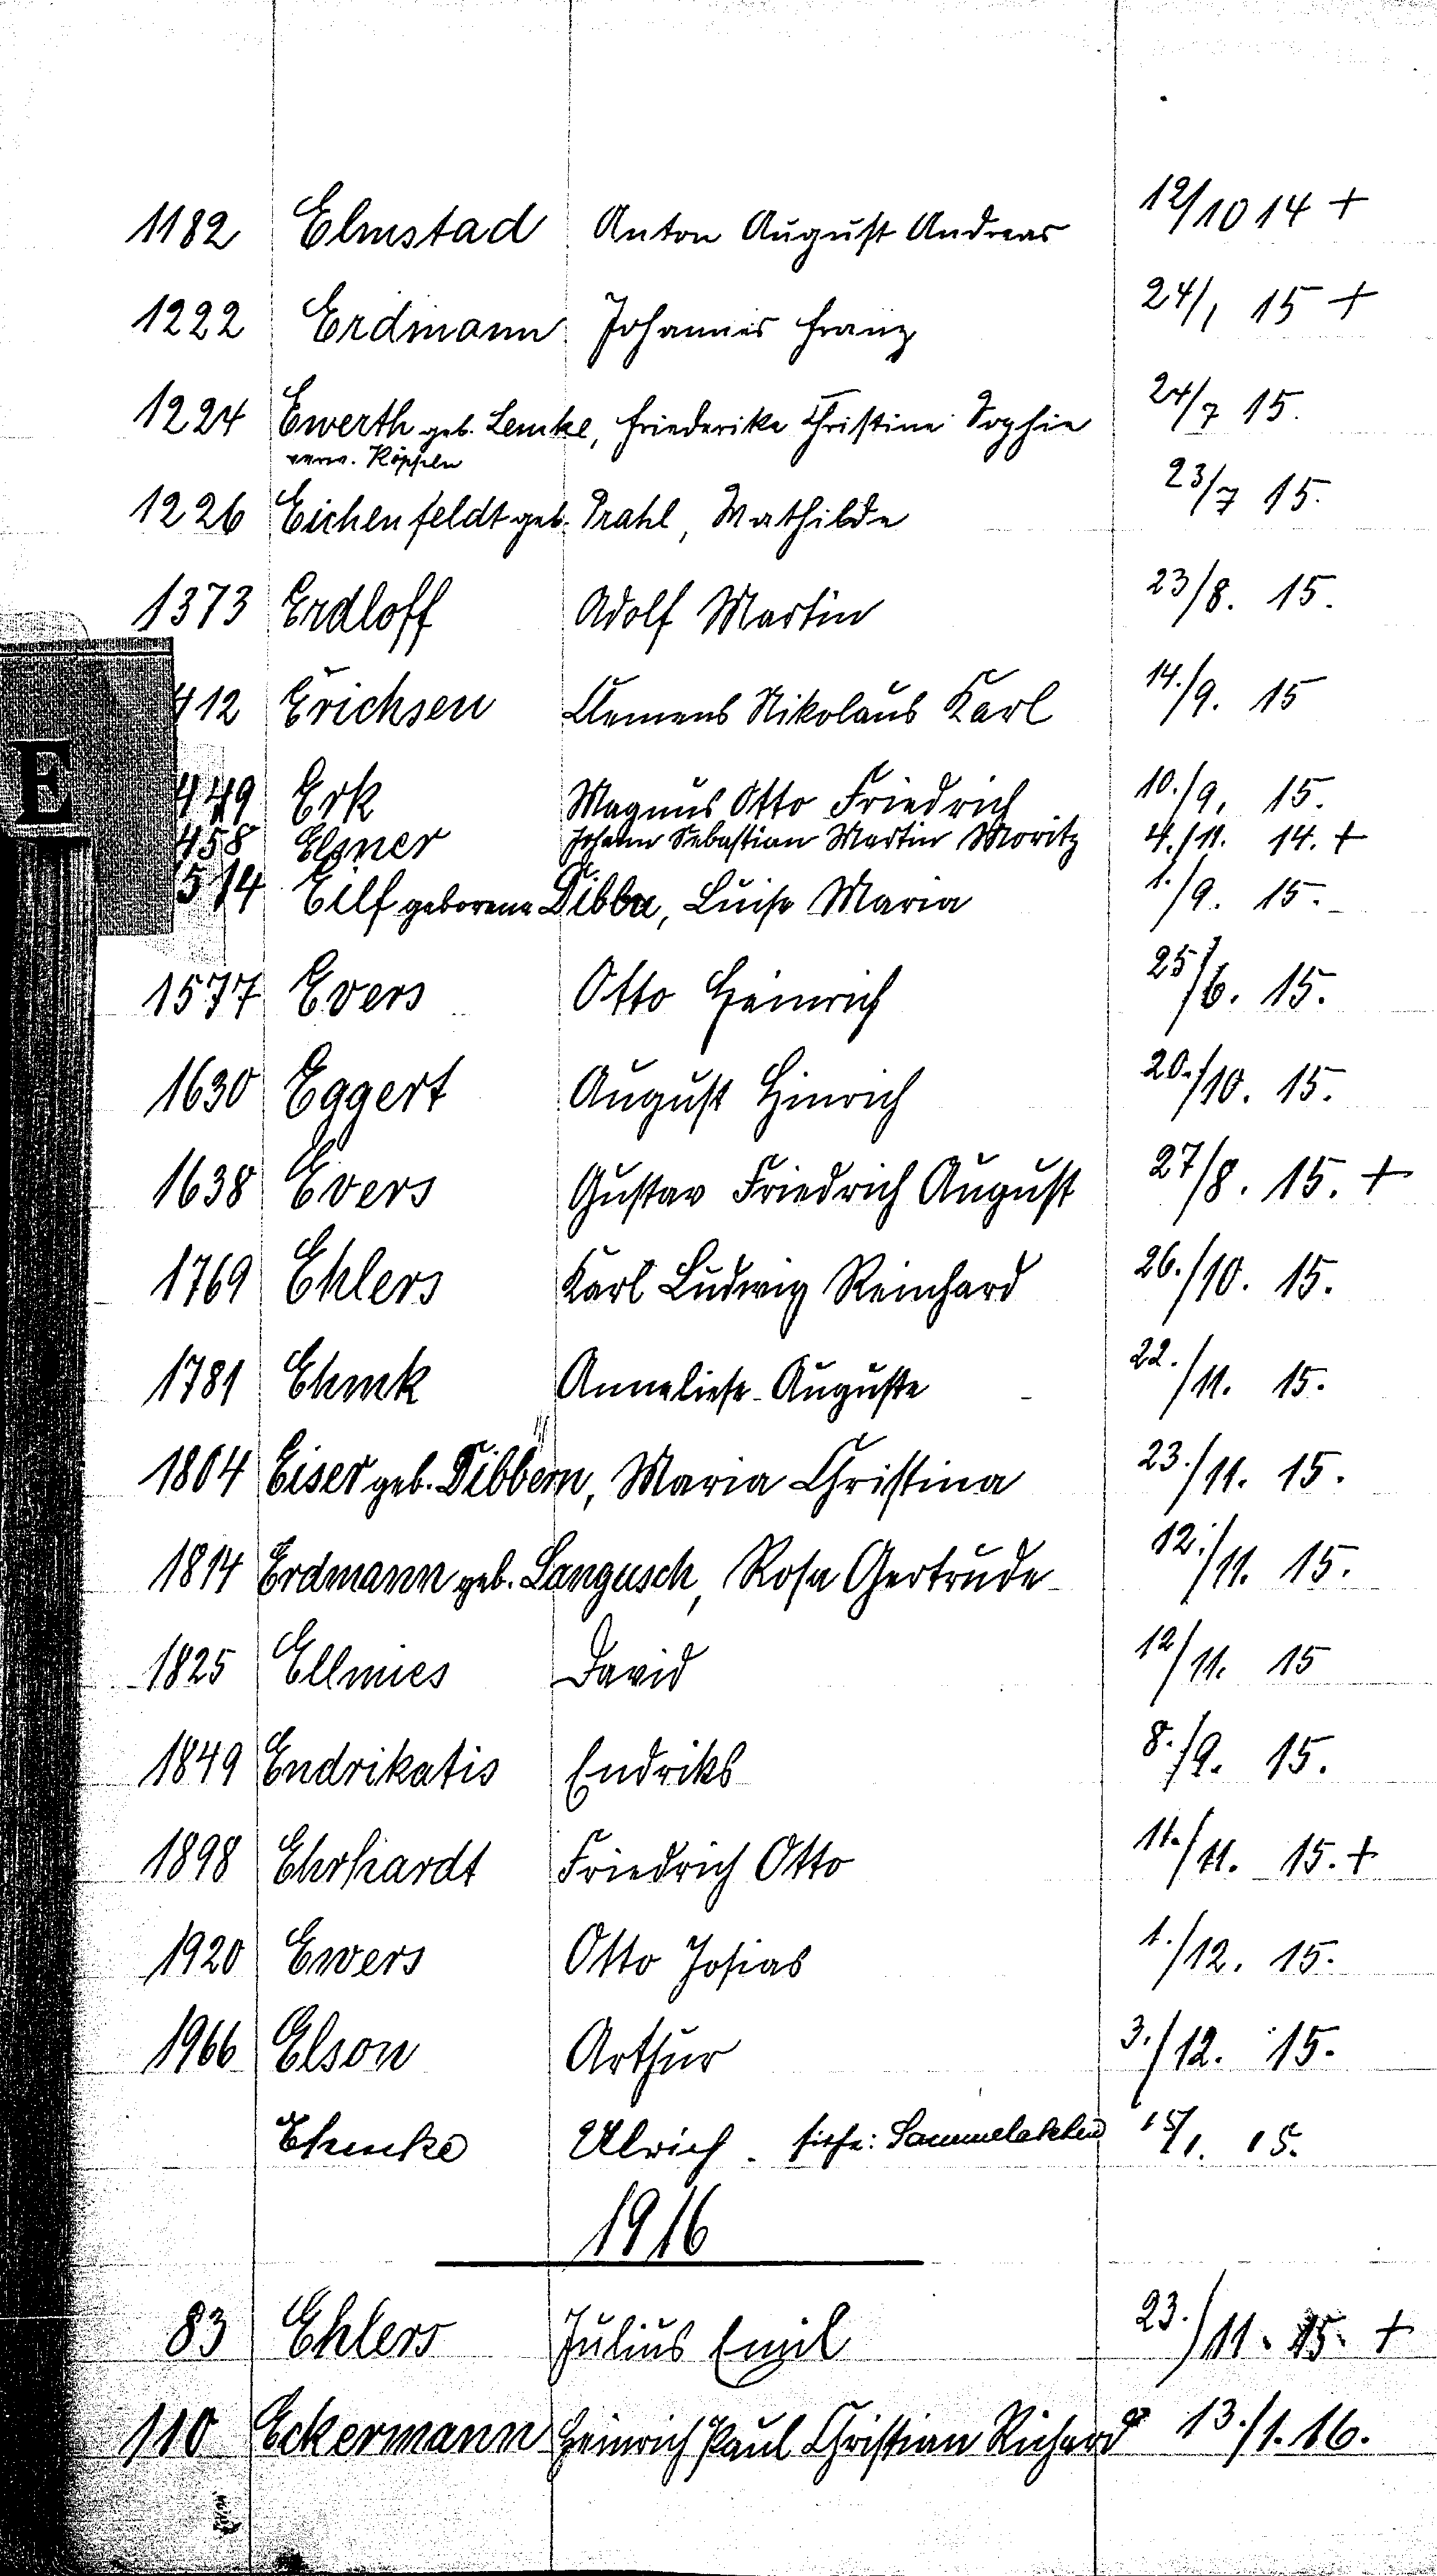 1182 Elmstad Anton August Andreas 12/10 14 +
1222 Erdmann Johannes Franz 24/1 15 +
1224 Ewerth geb. Lemke, Friederike Christine Sophie 24/7 15.
verw.
1226 Eichenfeldt geb. Prahl, Mathilde 23/7 15.
1373 Erdloff Adolf Martin 23/8. 15.
412 Erichsen Clemens Nikolaus Karl 14./9. 15
E
449 Erk Magnus Otto Friedrich 10./9. 15.
458 Elsner Johann Sebastian Martin Moritz 4./11. 14. +
514 Eilf geborene Dibbern, Luise Maria 1./9. 15.
1577 Evers Otto Heinrich 25/6. 15.
1630 Eggert August Hinrich 20./10. 15.
1638 Evers Gustav Friedrich August 27/8. 15. +
1769 Ehlers Karl Ludwig Reinhard 26./10. 15.
1781 Ehmk Anneliese Auguste 22./11. 15.
1804 Eiser geb. Dibbern, Maria Christina 23./11. 15.
1814 Erdmann geb. Langusch, Rosa Gertrude 12./11. 15.
1825 Ellmies David 12/11. 15
1849 Endrikatis Endriks 8./9. 15.
1898 Ehrhardt Friedrich Otto 11./11. 15. +
1920 Ewers Otto Josias 1./12. 15.
1966 Elson Arthur 3./12. 15.
Ehmke Ulrich. siehe: Sammelakten 15/1. 15.
1916
83 Ehlers Julius Emil 23./11. 15. +
110 Eckermann Heinrich Paul Christian Richard 13./1. 16.